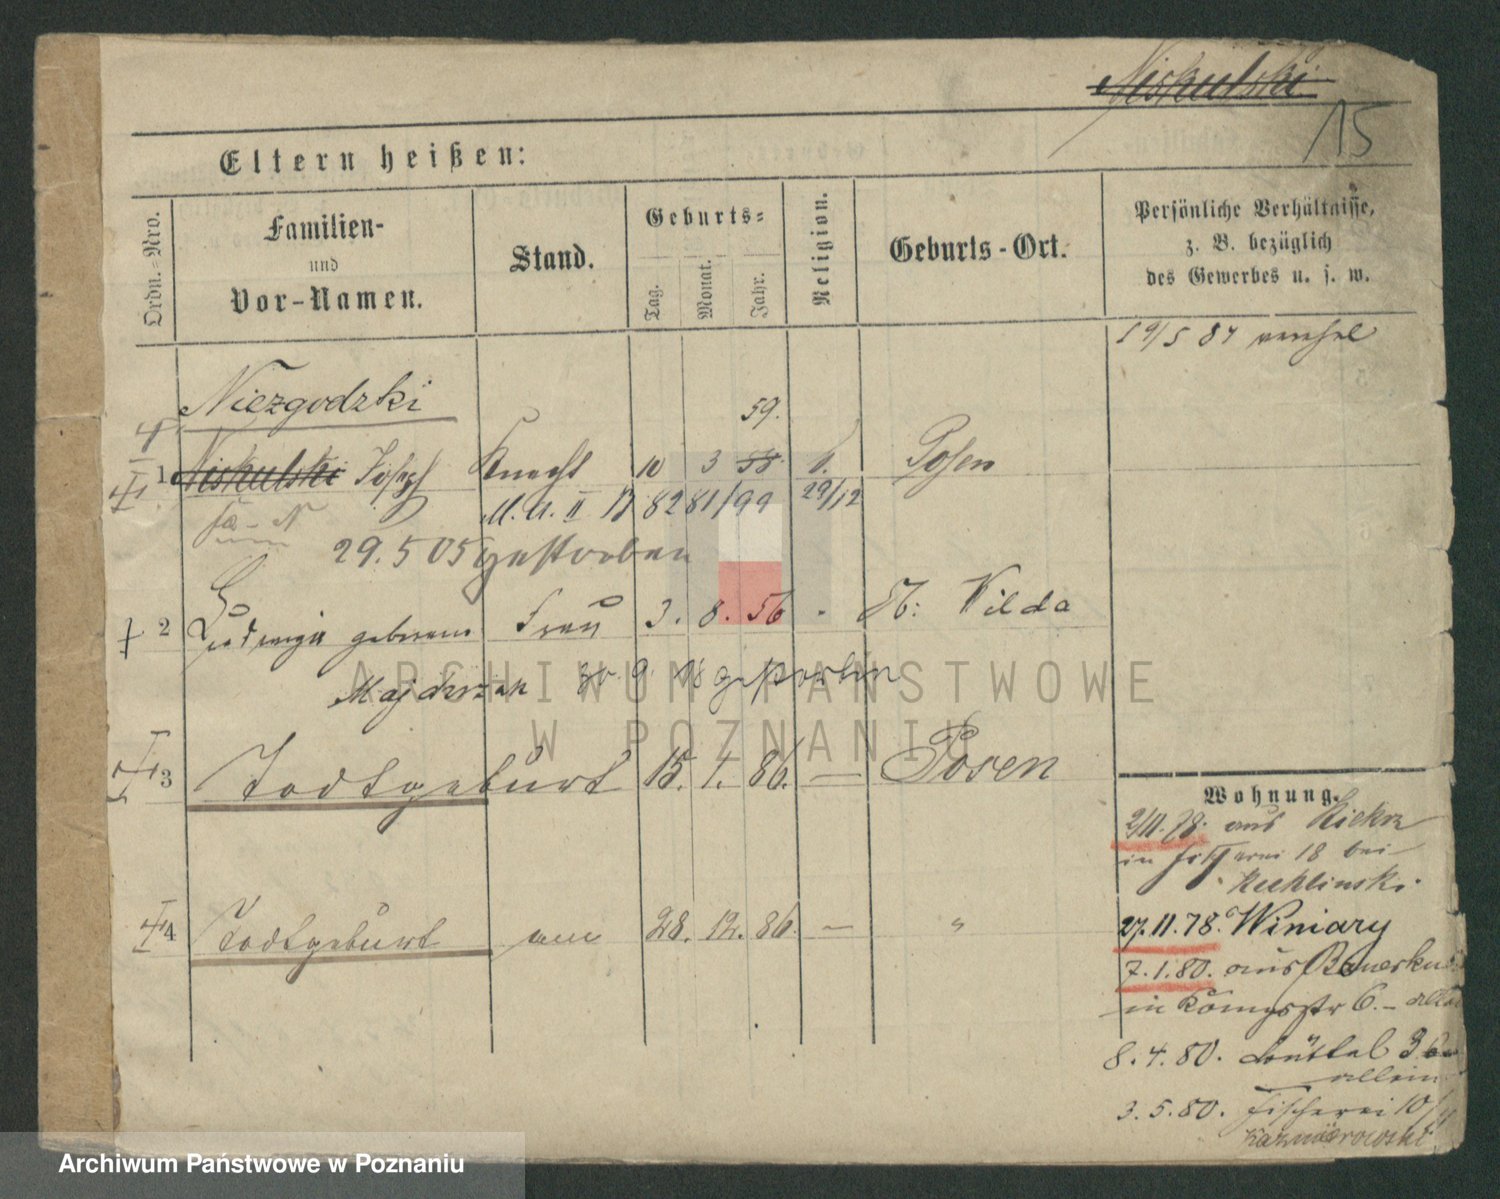 Niskulski
15
Eltern heißen:
Ordn.-Nro.
Familien-
und
Vor-Namen.
Stand.
Geburts-
Tag.
Monat.
Jahr.
Religion.
Geburts-Ort.
Persönliche Verhältnisse,
z. B. bezüglich
des Gewerbes u. s. w.
19/5 87
Niezgodzki
59.
1 Niskulski Joseph Knecht 10 3 58. k. Posen
M. U. II 82 81/99 29/12
29. 5 05 gestorben
2 Ludwiga geborene Frau 3. 8. 56 St: Wilda
Majchrzak 30. 9. 18 gestorben
3 Todtgeburt 15. 1. 86. — Posen
4 Todtgeburt 28. 12. 86. — "
Wohnung.
2/11. 78. aus Kiekrz
in Fischerei 18 bei
27. 11. 78. Winiary
7. 1. 80. aus
in Königsstr 6. –
8. 4. 80.
allein
3. 5. 80. Fischerei 10/11
Kazmierowski
ARCHIWUM PAŃSTWOWE
W POZNANIU
Archiwum Państwowe w Poznaniu